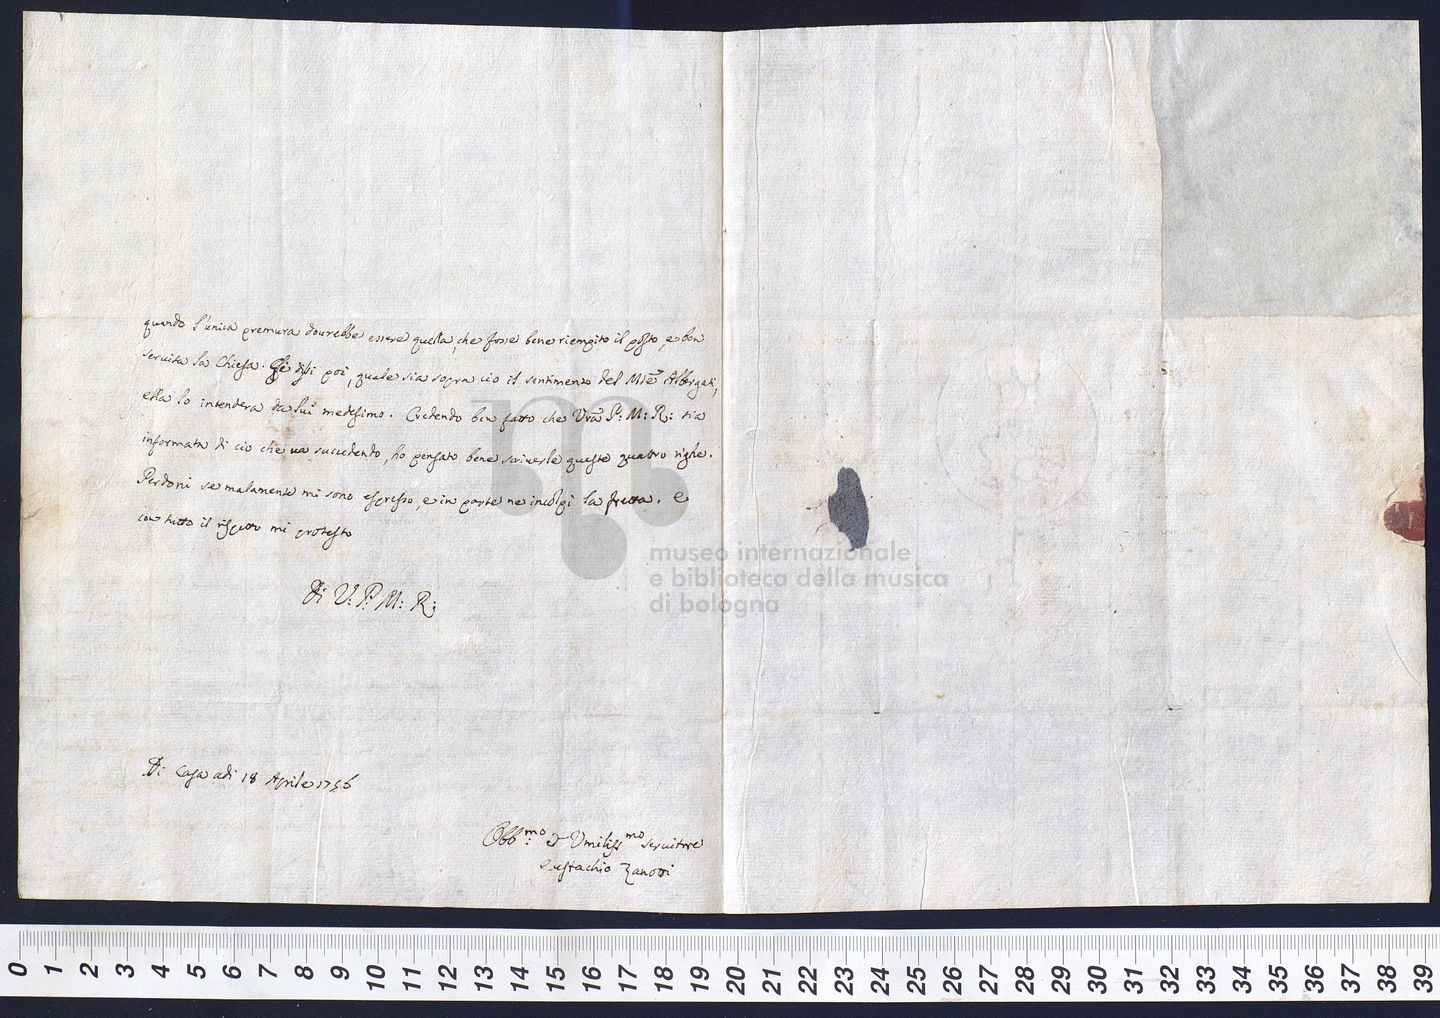 quando l'unica premura dourebbe essere quella, che fosse bene riempito il posto, e ben
seruita la Chiesa. poi, quale sia sopra cio il sentimento del Mse Albergati,
ella lo intenderà da lui medesimo. Credendo ben fatto che Vrã P: M: R: sia
informata di cio che ua succedendo, ho pensato bene scriuerle queste quatro righe.
Perdoni se malamente mi sono espresso, e in parte ne incolpi la fretta. e
con tutto il rispetto mi protesto
Di V: P: M: R:
Di Casa adi 18 Aprile 1756
Obbmo: et Umilissmo seruitore
Eustachio Zanotti
museo internazionale
e biblioteca della musica
di bologna
0 1 2 3 4 5 6 7 8 9 10 11 12 13 14 15 16 17 18 19 20 21 22 23 24 25 26 27 28 29 30 31 32 33 34 35 36 37 38 39